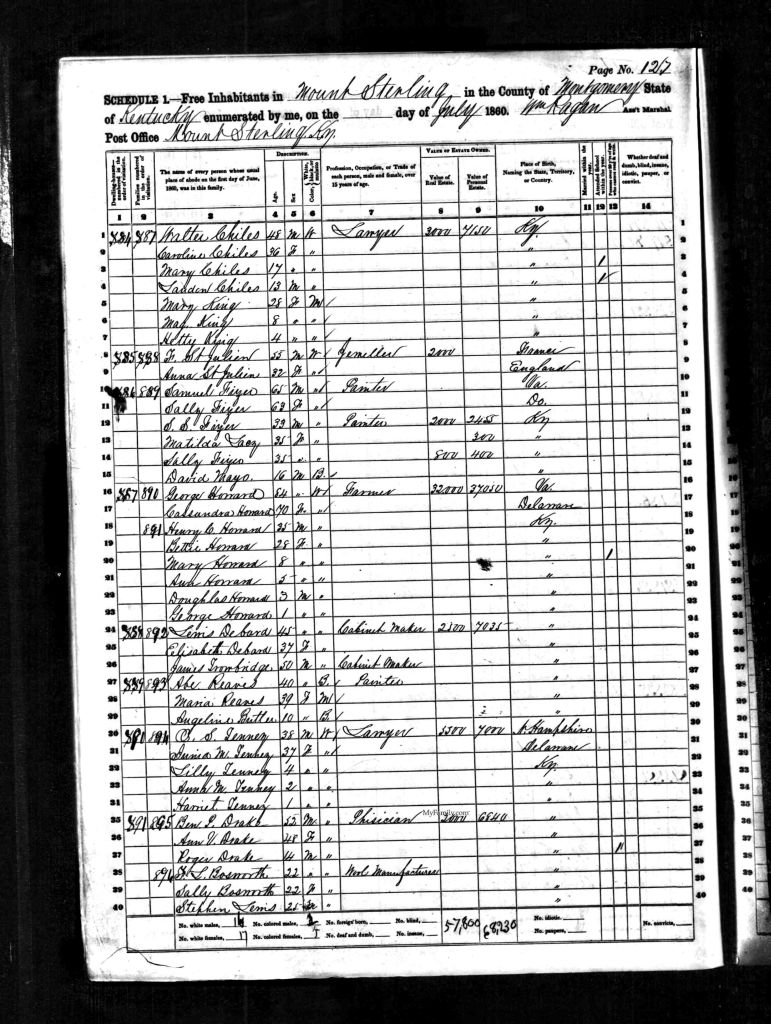 Page No. 127
SCHEDULE 1.—Free Inhabitants in Mount Sterling in the County of Montgomery State
of Kentucky enumerated by me, on the day of July 1860. Wm Ragan Ass't Marshal.
Post Office Mount Sterling Ky.
DESCRIPTION. VALUE OF ESTATE OWNED.
Dwelling-houses numbered in the order of visitation. Families numbered in the order of visitation. The name of every person whose usual place of abode on the first day of June, 1860, was in this family. Age. Sex. Color, White, black, or mulatto. Profession, Occupation, or Trade of each person, male and female, over 15 years of age. Value of Real Estate. Value of Personal Estate. Place of Birth, Naming the State, Territory, or Country. Married within the year. Attended School within the year. Whether deaf and dumb, blind, insane, idiotic, pauper, or convict.
1 2 3 4 5 6 7 8 9 10 11 12 13 14
1 884 887 Walter Chiles 48 M W Lawyer 3000 7150 Ky 1
2 Caroline Chiles 36 F " " 2
3 Mary Chiles 17 " " " / 3
4 Landon Chiles 13 M " " / 4
5 Mary King 28 F M / " 5
6 May King 8 " " / " 6
7 Hetty King 4 " " / " 7
8 885 888 F. St Julien 55 M W / Jeweller 2000 France 8
9 Anna St Julien 32 F " / England 9
10 886 889 Samuel Fizer 65 M " / Painter Va. 10
11 Sally Fizer 63 F " / Do. 11
12 S. S. Fizer 39 M " Painter 2000 2455 Ky 12
13 Matilda Lacy 35 F " 300 " 13
14 Sally Fizer 35 " " 800 400 " 14
15 David Mayo 16 M B / " 15
16 887 890 George Howard 84 " W / Farmer 32000 37050 Va. 16
17 Cassandra Howard 70 F " / Delaware 17
18 891 Henry C. Howard 35 M " Ky. 18
19 Bettie Howard 28 F " " 19
20 Mary Howard 8 " " " / 20
21 Ann Howard 5 " " " 21
22 Doughlas Howard 3 M " " 22
23 George Howard 1 " " " 23
24 888 892 Lewis Debard 45 " " Cabinet Maker 2500 7035 " 24
25 Elisabeth Debard 37 F " " 25
26 James Trowbridge 50 M " Cabinet Maker " 26
27 889 893 Abe Reaves 40 " B / Painter " 27
28 Maria Reaves 39 F M / " 28
29 Angeline Butler 10 " B / " 29
30 890 894 O. S. Tenney 38 M W / Lawyer 5500 7000 N. Hampshire 30
31 Junia M. Tenney 37 F " / Delaware 31
32 Lilly Tenney 4 " " Ky. 32
33 Anna M. Tenney 2 " " " 33
34 Harriet Tenney 1 " " " 34
35 891 895 Ben P. Drake 52 M " Phisician 2000 6840 " 35
36 Ann V. Drake 48 F " " 36
37 Roger Drake 14 M " " 37
38 896 L. Bosworth 22 " " Wool Manufacturer " 38
39 Sally Bosworth 22 F " " 39
40 Stephen Lewis 25 M " " 40
MyFamily.com
No. white males, No. colored males, No. foreign born, No. blind, 57,800 68,230 No. idiotic,
No. white females, 17 No. colored females, No. deaf and dumb, No. insane, No. paupers, No. convicts,